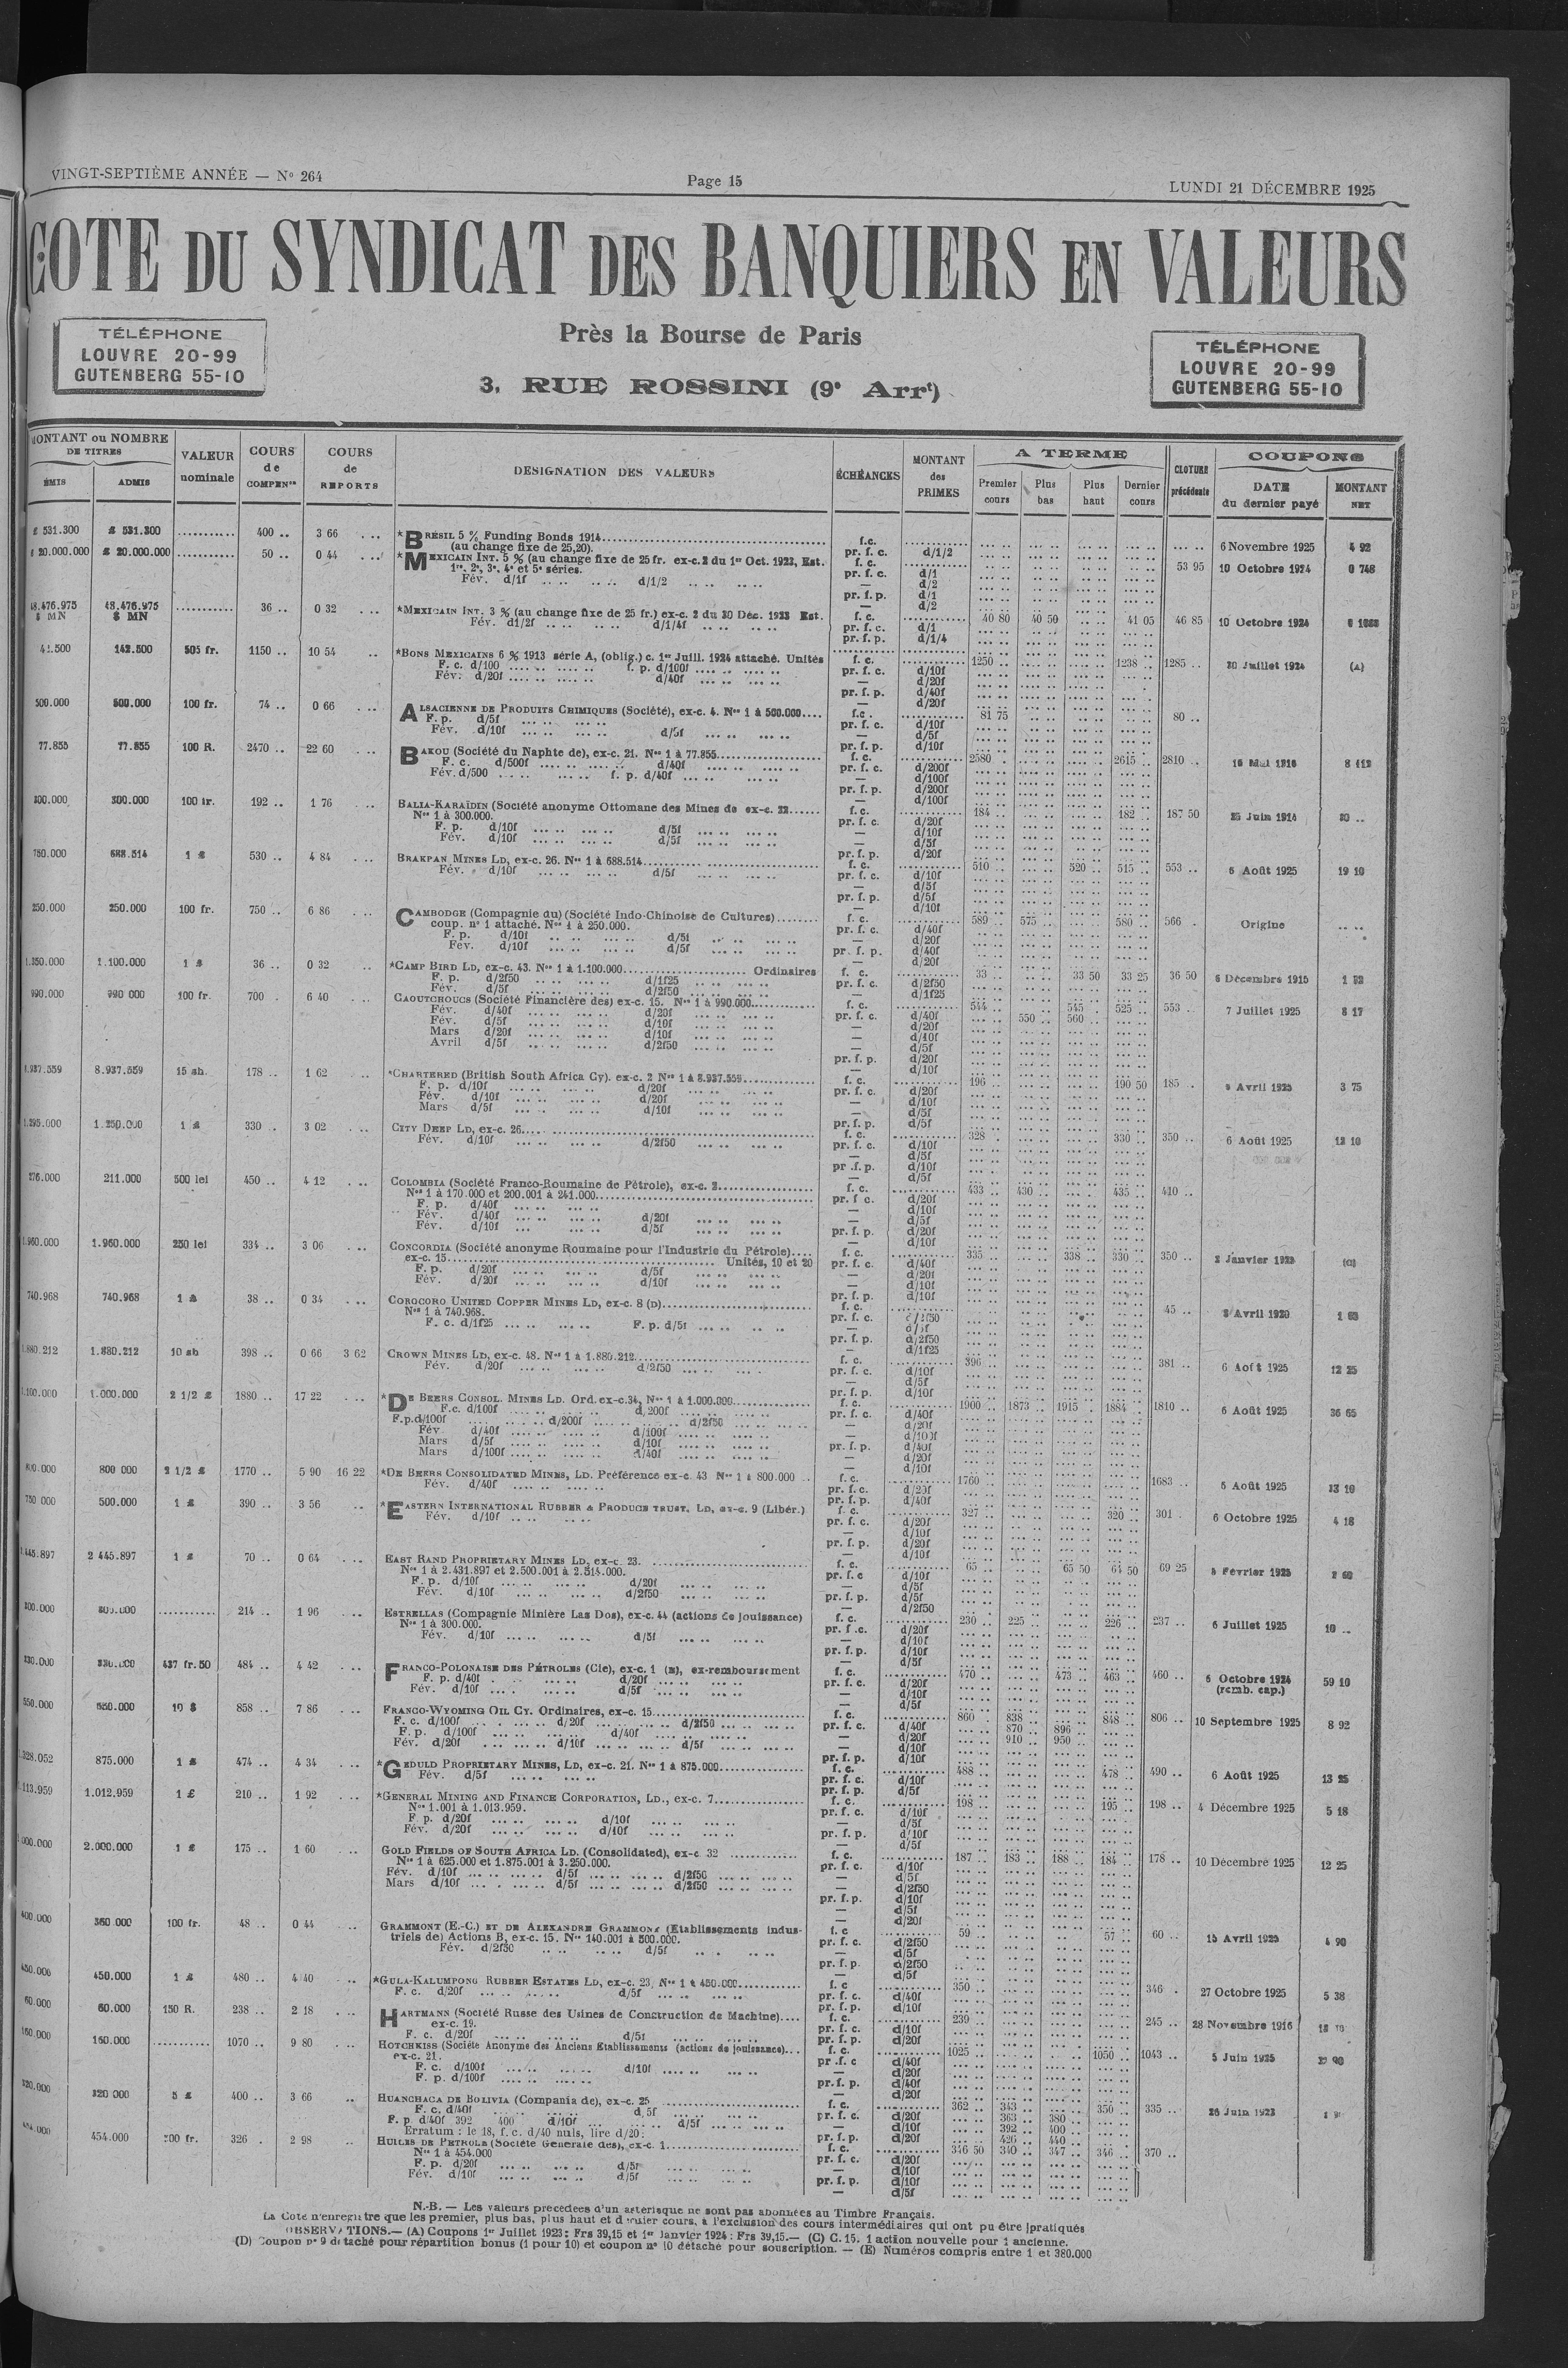 VINGT-SEPTIÈME ANNÉE — N° 264
Page 15
LUNDI 21 DÉCEMBRE 1925
COTE DU SYNDICAT DES BANQUIERS EN VALEURS
TÉLÉPHONE
LOUVRE 20-99
GUTENBERG 55-10
Près la Bourse de Paris
3, RUE ROSSINI (9e Arrt)
TÉLÉPHONE
LOUVRE 20-99
GUTENBERG 55-10
MONTANT ou NOMBRE DE TITRES
ÉMIS
ADMIS
VALEUR nominale
COURS de COMPENon
COURS de REPORTS
DESIGNATION DES VALEURS
ÉCHÉANCES
MONTANT des PRIMES
A TERME
Premier cours
Plus bas
Plus haut
Dernier cours
CLOTURE précédente
COUPONS
DATE du dernier payé
MONTANT NET
£ 531.300 £ 531.300 400 .. 3 66 *BRÉSIL 5 % Funding Bonds 1914 f.c. 6 Novembre 1925 4 92
(au change fixe de 25,20). pr. f. c. d/1/2
£ 20.000.000 £ 20.000.000 50 .. 0 44 *MEXICAIN INT. 5 % (au change fixe de 25 fr. ex-c. 2 du 1er Oct. 1923, Est. f. c. 53 95 10 Octobre 1924 0 746
1re, 2e, 3e, 4e et 5e séries. pr. f. c. d/1
Fév. d/1f d/1/2 — d/2
pr. f. p. d/1
— d/2
48.476.975 $ MN 48.476.975 $ MN 36 .. 0 32 *MEXICAIN INT. 3 % (au change fixe de 25 fr.) ex-c. 2 du 30 Déc. 1923 Est. f. c. 40 80 40 50 41 05 46 85 10 Octobre 1924
Fév. d1/2f d/1/4f pr. f. c. d/1
pr. f. p. d/1/4
142.500 505 fr. 1150 .. 10 54 *BONS MEXICAINS 6 % 1913 série A, (oblig.) c. 1er Juill. 1924 attaché. Unités f. c. 1250 1238 .. 1285 .. 30 Juillet 1924 (A)
F. c. d/100 f. p. d/100f pr. f. c. d/10f
Fév. d/20f d/40f — d/20f
pr. f. p. d/40f
— d/20f
500.000 500.000 100 fr. 74 .. 0 66 ALSACIENNE DE PRODUITS CHIMIQUES (Société), ex-c. 4. Nos 1 à 500.000 f.c. 81 75 80 ..
F. p. d/5f pr. f. c. d/10f
Fév. d/10f d/5f — d/5f
pr. f. p. d/10f
77.855 77.855 100 R. 2470 .. 22 60 BAKOU (Société du Naphte de), ex-c. 21. Nos 1 à 77.855 f. c. 2580 2615 .. 2810 .. 8 112
F. c. d/500f d/40f pr. f. c. d/200f
Fév. d/500 f. p. d/40f — d/100f
pr. f. p. d/200f
— d/100f
300.000 300.000 100 fr. 192 .. 1 76 BALIA-KARAÏDIN (Société anonyme Ottomane des Mines de ex-c. 22 f. c. 184 182 .. 187 50 25 Juin 1914 20 ..
Nos 1 à 300.000. pr. f. c. d/20f
F. p. d/10f d/5f — d/10f
Fév. d/10f d/5f — d/5f
pr. f. p. d/20f
750.000 688.514 1 £ 530 .. 4 84 BRAKPAN MINES LD, ex-c. 26. Nos 1 à 688.514 f. c. 510 .. 520 .. 515 .. 553 .. 6 Août 1925 19 10
Fév. d/10f d/5f pr. f. c. d/10f
— d/5f
pr. f. p. d/5f
— d/10f
250.000 250.000 100 fr. 750 .. 6 86 CAMBODGE (Compagnie du) (Société Indo-Chinoise de Cultures) f. c. 589 575 .. 580 .. 566 . Origine
coup. n° 1 attaché. Nos 1 à 250.000. pr. f. c. d/40f
F. p. d/10f d/5f — d/20f
Fév. d/10f d/5f pr. f. p. d/40f
— d/20f
1.350.000 1.100.000 1 £ 36 .. 0 32 *CAMP BIRD LD, ex-c. 43. Nos 1 à 1.100.000 Ordinaires f. c. 33 33 50 33 25 36 50 6 Décembre 1915
F. p. d/2f50 d/1f25 pr. f. c. d/2f50
Fév. d/5f d/2f50 — d/1f25
990.000 990 000 100 fr. 700 . 6 40 CAOUTCHOUCS (Société Financière des) ex-c. 15. Nos 1 à 990.000 f. c. 544 545 . 525 .. 553 .. 7 Juillet 1925 8 17
Fév. d/40f d/20f pr. f. c. d/40f 550 .. 560 ..
Fév. d/5f d/10f — d/20f
Mars d/20f d/10f — d/10f
Avril d/5f d/2f50 — d/5f
pr. f. p. d/20f
— d/10f
8.937.559 15 sh. 178 .. 1 62 *CHARTERED (British South Africa Cy). ex-c. 2 Nos 1 à 8.937.559 f. c. 196 190 50 185 .. Avril 1925 3 75
F. p. d/10f d/20f pr. f. c. d/20f
Fév. d/10f d/20f — d/10f
Mars d/5f d/10f — d/5f
pr. f. p. d/5f
1.295.000 1.250.000 1 £ 330 .. 3 02 CITY DEEP LD, ex-c. 26 f. c. 328 330 .. 350 .. 6 Août 1925 12 10
Fév. d/10f d/2f50 pr. f. c. d/10f
— d/5f
pr .f. p. d/10f
— d/5f
276.000 211.000 500 lei 450 .. 4 12 COLOMBIA (Société Franco-Roumaine de Pétrole), ex-c. 2 f. c. 433 .. 430 .. 435 .. 410 ..
Nos 1 à 170.000 et 200.001 à 241.000 pr. f c. d/20f
F. p. d/40f — d/10f
Fév. d/40f d/20f — d/5f
Fév. d/10f d/5f pr. f. p. d/20f
— d/10f
1.960.000 1.960.000 250 lei 334 .. 3 06 CONCORDIA (Société anonyme Roumaine pour l'Industrie du Pétrole) f. c. 335 338 .. 330 .. 350 .. 2 Janvier 1925 (C)
ex-c. 15 Unités, 10 et 20 pr. f. c. d/40f
F. p. d/20f d/5f — d/20f
Fév. d/20f d/10f — d/10f
pr. f. p. d/10f
740.968 740.968 1 £ 38 .. 0 34 COROCORO UNITED COPPER MINES LD, ex-c. 8 (D) f. c. 45 .. Avril 1920
Nos 1 à 740.968. pr. f. c. d/2f50
F. c. d/1f25 F. p. d/5f — d/5f
pr. f. p. d/2f50
— d/1f25
1.880.212 1.880.212 10 sh 398 .. 0 66 3 62 CROWN MINES LD, ex-c. 48. Nos 1 à 1.880.212 f. c. 396 381 .. 6 Août 1925 12 25
Fév. d/20f d/2f50 pr. f. c. d/10f
— d/5f
pr. f. p. d/10f
1.100.000 1.000.000 2 1/2 £ 1880 .. 17 22 *DE BEERS CONSOL. MINES LD. Ord. ex-c.34, Nos 1 à 1.000.000 f. c. 1900 .. 1873 .. 1915 .. 1884 .. 1810 .. 6 Août 1925 36 65
F.c. d/100f d/200f pr. f. c. d/40f
F.p.d/100f d/200f d/2f50 — d/20f
Fév. d/40f d/100f — d/100f
Mars d/5f d/10f pr. f. p. d/40f
Mars d/100f d/40f — d/20f
— d/10f
800.000 800 000 2 1/2 £ 1770 .. 5 90 16 22 *DE BEERS CONSOLIDATED MINES, LD. Préférence ex-c. 43 Nos 1 à 800.000 f. c. 1760 1683 .. 6 Août 1925 13 10
Fév. d/40f pr. f. c. d/20f
pr. f. p. d/40f
750 000 500.000 1 £ 390 .. 3 56 *EASTERN INTERNATIONAL RUBBER & PRODUCE TRUST, LD, ex-c. 9 (Libér.) f. c. 327 320 .. 301 . 6 Octobre 1925 4 18
Fév. d/10f pr. f. c. d/20f
— d/10f
pr. f. p. d/20f
— d/10f
2 445.897 1 £ 70 .. 0 64 EAST RAND PROPRIETARY MINES LD, ex-c. 23. f. c. 65 65 50 64 50 69 25 Février 1925
Nos 1 à 2.431.897 et 2.500.001 à 2.514.000. pr. f. c d/10f
F. p. d/10f d/20f — d/5f
Fév. d/10f d/2f50 pr. f. p. d/5f
— d/2f50
300.000 300.000 214 .. 1 96 ESTRELLAS (Compagnie Minière Las Dos), ex-c. 44 (actions de jouissance) f. c. 230 .. 225 .. 226 .. 237 .. 6 Juillet 1925 10 ..
Nos 1 à 300.000. pr. f .c. d/20f
Fév. d/10f d/5f — d/10f
pr. f. p. d/10f
— d/5f
437 fr. 50 484 .. 4 42 FRANCO-POLONAISE DES PÉTROLES (Cie), ex-c. 1 (E), ex-remboursement f. c. 470 473 .. 463 .. 460 .. 6 Octobre 1924 59 10
F. p. d/40f d/20f pr. f. c. d/20f (remb. cap.)
Fév. d/10f d/5f — d/10f
— d/5f
550.000 550.000 10 $ 858 .. 7 86 FRANCO-WYOMING OIL CY. Ordinaires, ex-c. 15 f. c. 860 838 .. 848 .. 806 .. 10 Septembre 1925 8 92
F. c. d/100f d/20f d/2f50 pr. f. c. d/40f 870 .. 896 ..
F. p. d/100f d/40f — d/20f 910 .. 950 ..
Fév. d/20f d/10f d/5f — d/10f
pr. f. p. d/10f
875.000 1 £ 474 .. 4 34 *GEDULD PROPRIETARY MINES, LD, ex-c. 21. Nos 1 à 875.000 f. c. 488 478 .. 490 .. 6 Août 1925 13 25
Fév. d/5f pr. f. c. d/10f
pr. f. p. d/5f
1.012.959 1 £ 210 .. 1 92 *GENERAL MINING AND FINANCE CORPORATION, LD., ex-c. 7 f. c. 198 195 .. 198 .. 4 Décembre 1925 5 18
Nos 1.001 à 1.013.959. pr. f. c. d/10f
F. p. d/20f d/10f — d/5f
Fév. d/20f d/10f pr. f. p. d/10f
— d/5f
2.000.000 1 £ 175 .. 1 60 GOLD FIELDS OF SOUTH AFRICA LD. (Consolidated), ex-c 32 f. c. 187 .. 183 .. 188 .. 184 .. 178 .. 10 Décembre 1925 12 25
Nos 1 à 625.000 et 1.875.001 à 3.250.000. pr. f. c. d/10f
Fév. d/10f d/5f d/2f50 — d/5f
Mars d/10f d/5f d/2f50 — d/2f50
pr. f. p. d/10f
— d/5f
— d/20f
400.000 360.000 100 fr. 48 .. 0 44 GRAMMONT (E.-C.) ET DE ALEXANDRE GRAMMONT (Etablissements indus- f. c 59 57 .. 60 .. 15 Avril 1925 4 90
triels de) Actions B, ex-c. 15. Nos 140.001 à 500.000. pr. f. c. d/2f50
Fév. d/2f50 d/5f — d/5f
pr. f. p. d/2f50
— d/5f
450.000 450.000 1 £ 480 .. 4 40 *GULA-KALUMPONG RUBBER ESTATES LD, ex-c. 23, Nos 1 à 450.000 f. c 350 346 . 27 Octobre 1925 5 38
F. c. d/20f d/5f pr. f. c. d/40f
pr. f. p. d/10f
60.000 60.000 150 R. 238 .. 2 18 HARTMANN (Société Russe des Usines de Construction de Machine) f. c. 239 245 .. 28 Novembre 1916
ex-c. 19. pr. f. c. d/10f
F. c. d/20f d/5f pr. f. p. d/20f
160.000 160.000 1070 .. 9 80 HOTCHKISS (Société Anonyme des Anciens Etablissements (actions de jouissance) f. c. 1025 1050 .. 1043 .. 5 Juin 1925
ex-c. 21. pr .f. c d/40f
F. c. d/100f d/10f — d/20f
F. p. d/100f pr.f. p. d/40f
— d/20f
320.000 320 000 5 £ 400 .. 3 66 HUANCHACA DE BOLIVIA (Compania de), ex-c. 25 f. c. 362 .. 343 350 .. 335 .. 26 Juin 1923
F. c. d/40f d/5f pr. f. c. d/20f 363 .. 380 ..
F. p d/40f 392 400 d/10f d/5f — d/10f 392 .. 400 ..
Erratum : le 18, f. c. d/40 nuls, lire d/20. pr. f. p. d/20f 426 .. 440 ..
454.000 100 fr. 326 . 2 98 HUILES DE PETROLE (Société Générale des), ex-c. 1 f. c. 346 50 340 .. 347 .. 346 370 ..
Nos 1 à 454.000 pr. f. c. d/20f
F. p. d/20f d/5f — d/10f
Fév. d/10f d/5f pr. f. p. d/10f
— d/5f
N.-B. — Les valeurs précédées d'un astérisque ne sont pas abonnées au Timbre Français.
La Cote n'enregitre que les premier, plus bas, plus haut et dernier cours, à l'exclusion des cours intermédiaires qui ont pu être pratiqués
OBSERVATIONS.— (A) Coupons 1er Juillet 1923 : Frs 39,15 et 1er Janvier 1924 : Frs 39,15.— (C) C. 15. 1 action nouvelle pour 1 ancienne.
(D) Coupon n° 9 détaché pour répartition bonus (1 pour 10) et coupon n° 10 détaché pour souscription. — (E) Numéros compris entre 1 et 380.000